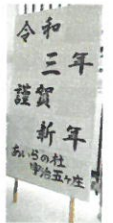 令和
三年
謹賀
新年
あいらの杜
宇治五ヶ庄